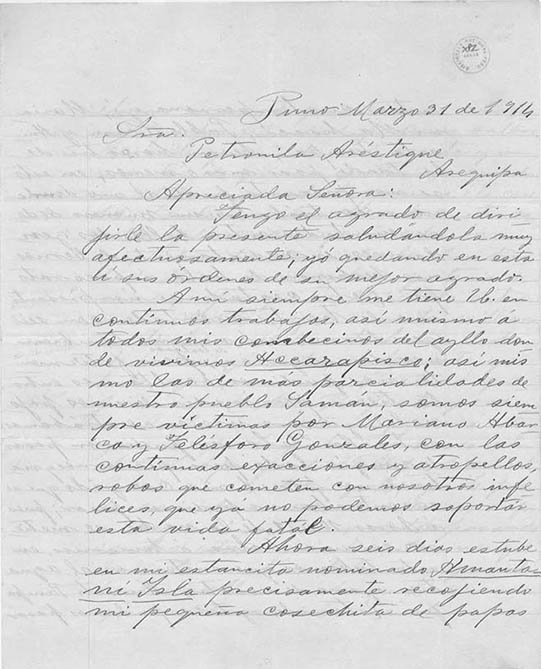 Puno Marzo 31 de 1914
Sña.
Petronila Aréstigue
Arequipa
Apreciada Señora:
Tengo el agrado de diri
jirle la presente saludándola muy
afectuosamente; yo quedando en esta
á sus órdenes de su mejor agrado.
A mi siempre me tiene U. en
continuos trabajos, así mismo á
todos mis combecinos del ayllo don
de vivimos Hccarapisco; así mis
mo las de más parcialidades de
nuestro pueblo Saman; somos siem
pre víctimas por Mariano Abar
ca y Telésforo Gonzales, con las
continuas exacciones y atropellos,
robos que cometen con nosotros infe
lices, que ya no podemos soportar
esta vida fatal.
Ahora seis dias estube
en mi estancita nominado Amanta
ni Isla precisamente recojiendo
mi pequeña cosechita de papas